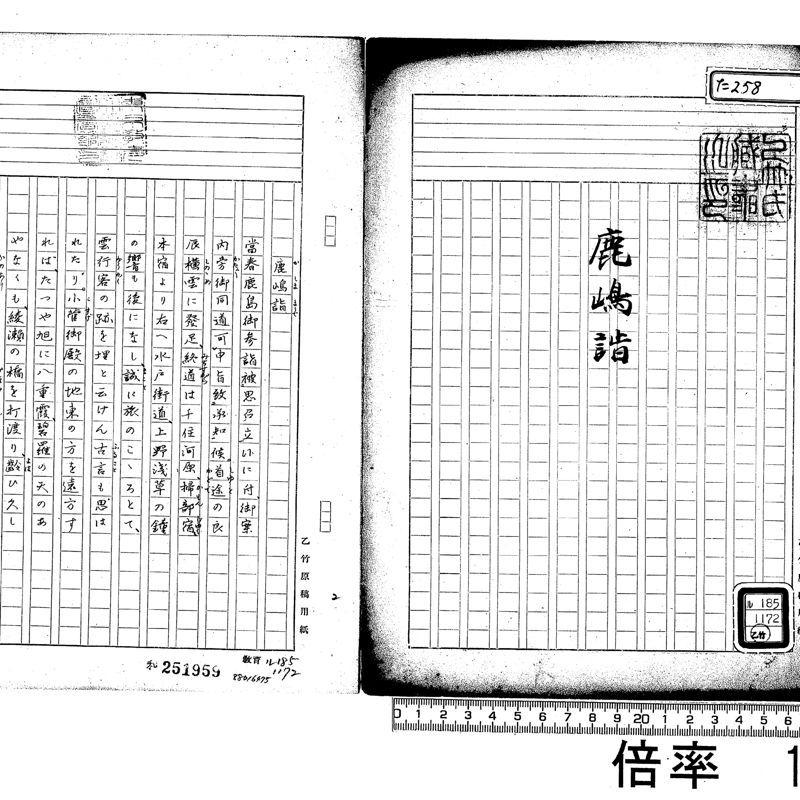 た258
乙竹氏
蔵書
鹿嶋詣
ル185
1172
乙竹
鹿嶋詣
かしまもうで
當春鹿島御参詣被思召立候に付、御案
内旁御同道可申旨致承知候。首途の良
辰横雲に発足、終道は千住河原、掃部宿
本宿より右へ水戸街道、上野浅草の鐘
の響も後になし、誠に旅のこゝろとて、
雲行客の跡を埋と云けん古言も思は
れたり。小菅御殿の地東の方を遠方す
れば、たつや旭に八重霞、碧羅の天のあ
やなくも、綾瀬の橋を打渡り、齢ひ久し
乙竹原稿用紙
2
教育
ル185
1172
251959
88016475
0 1 2 3 4 5 6 7 8 9 10 1 2 3 4 5 6 7 8 9 20 1 2 3 4 5 6
倍率 1